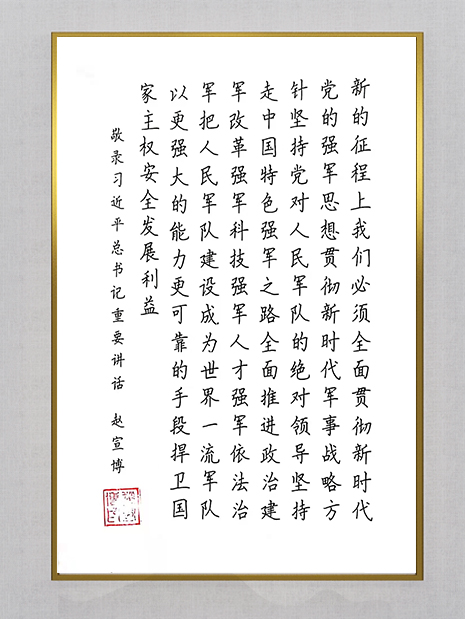 新的征程上我们必须全面贯彻新时代
党的强军思想贯彻新时代军事战略方
针坚持党对人民军队的绝对领导坚持
走中国特色强军之路全面推进政治建
军改革强军科技强军人才强军依法治
军把人民军队建设成为世界一流军队
以更强大的能力更可靠的手段捍卫国
家主权安全发展利益
敬录习近平总书记重要讲话 赵宣博